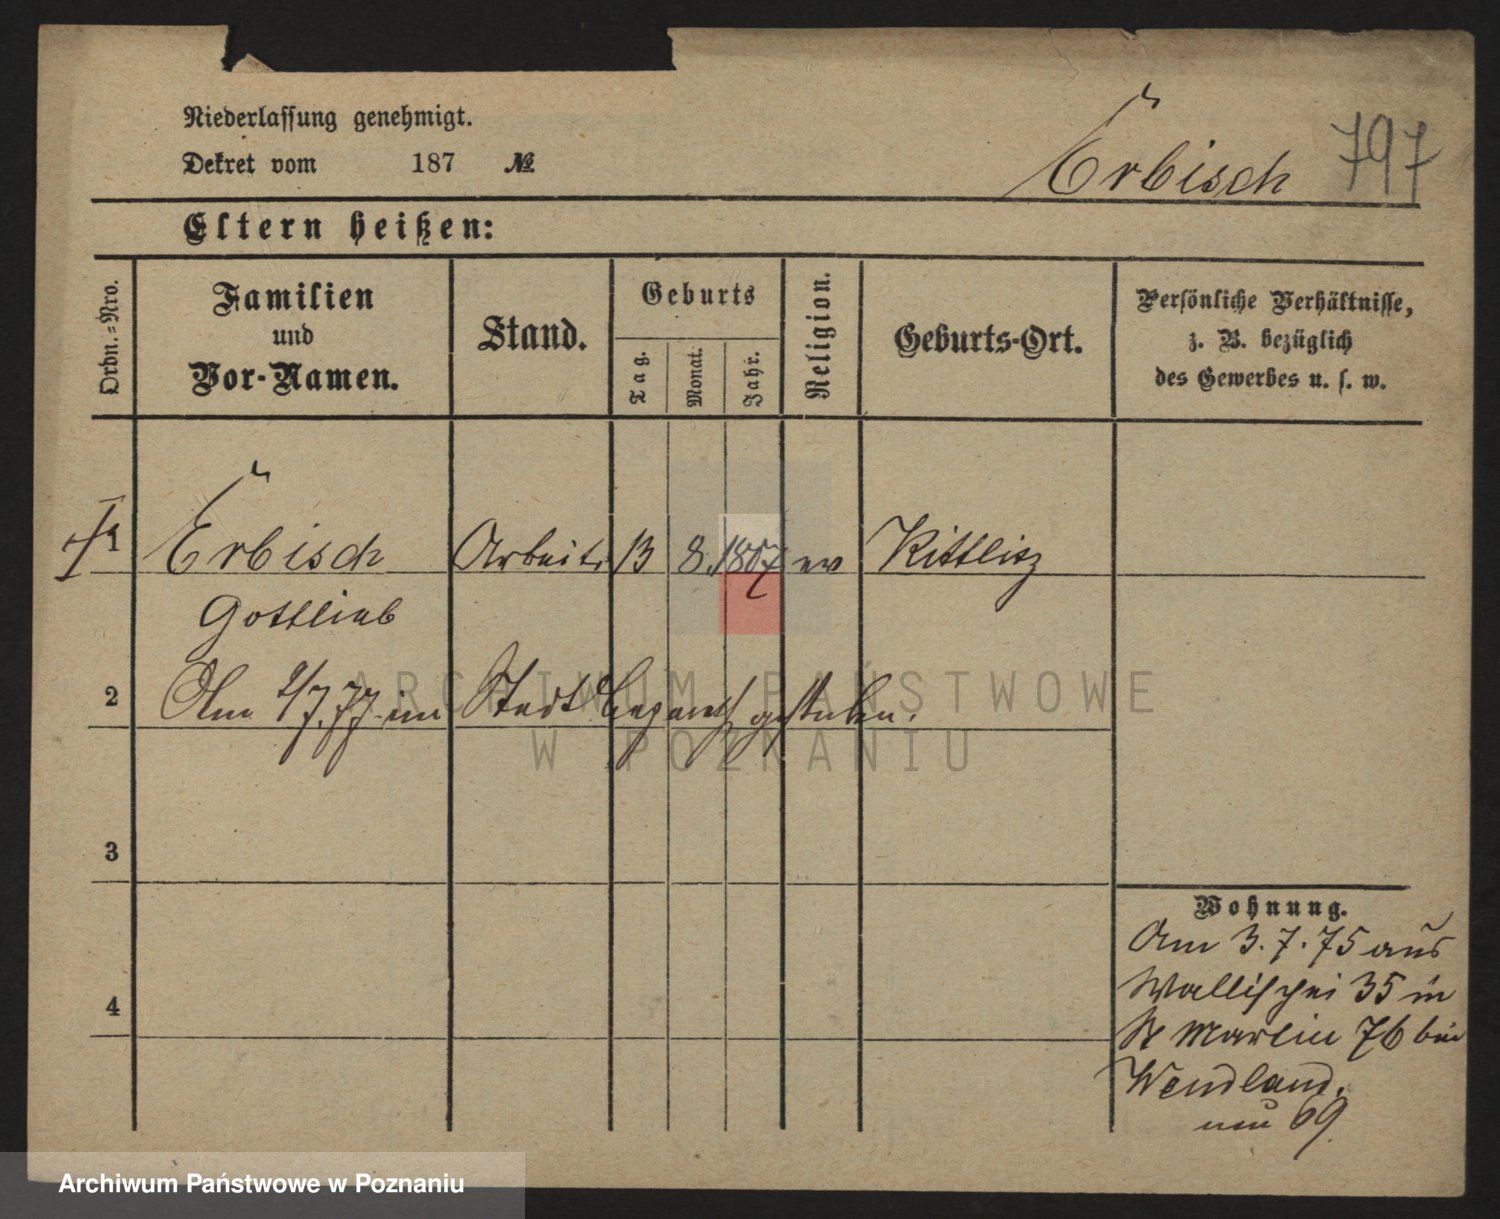 Niederlassung genehmigt.
797
Dekret vom 187 №
Erbisch
Eltern heißen:
Ordn.=Nro.
Familien
und
Vor-Namen.
Stand.
Geburts
Tag.
Monat.
Jahr.
Religion.
Geburts-Ort.
Persönliche Verhältnisse,
z. B. bezüglich
des Gewerbes u. s. w.
1 Erbisch Arbeit. 13 8. 1807 ev Kittlitz
Gottlieb
2 Am 2/7.77. im Stadtlazareth gestorben.
ARCHIWUM PAŃSTWOWE
W POZNANIU
3
4
Wohnung.
Am 3.7.75 aus
Wallischei 35 in
St Martin 76 bei
Wendland.
neu 69
Archiwum Państwowe w Poznaniu